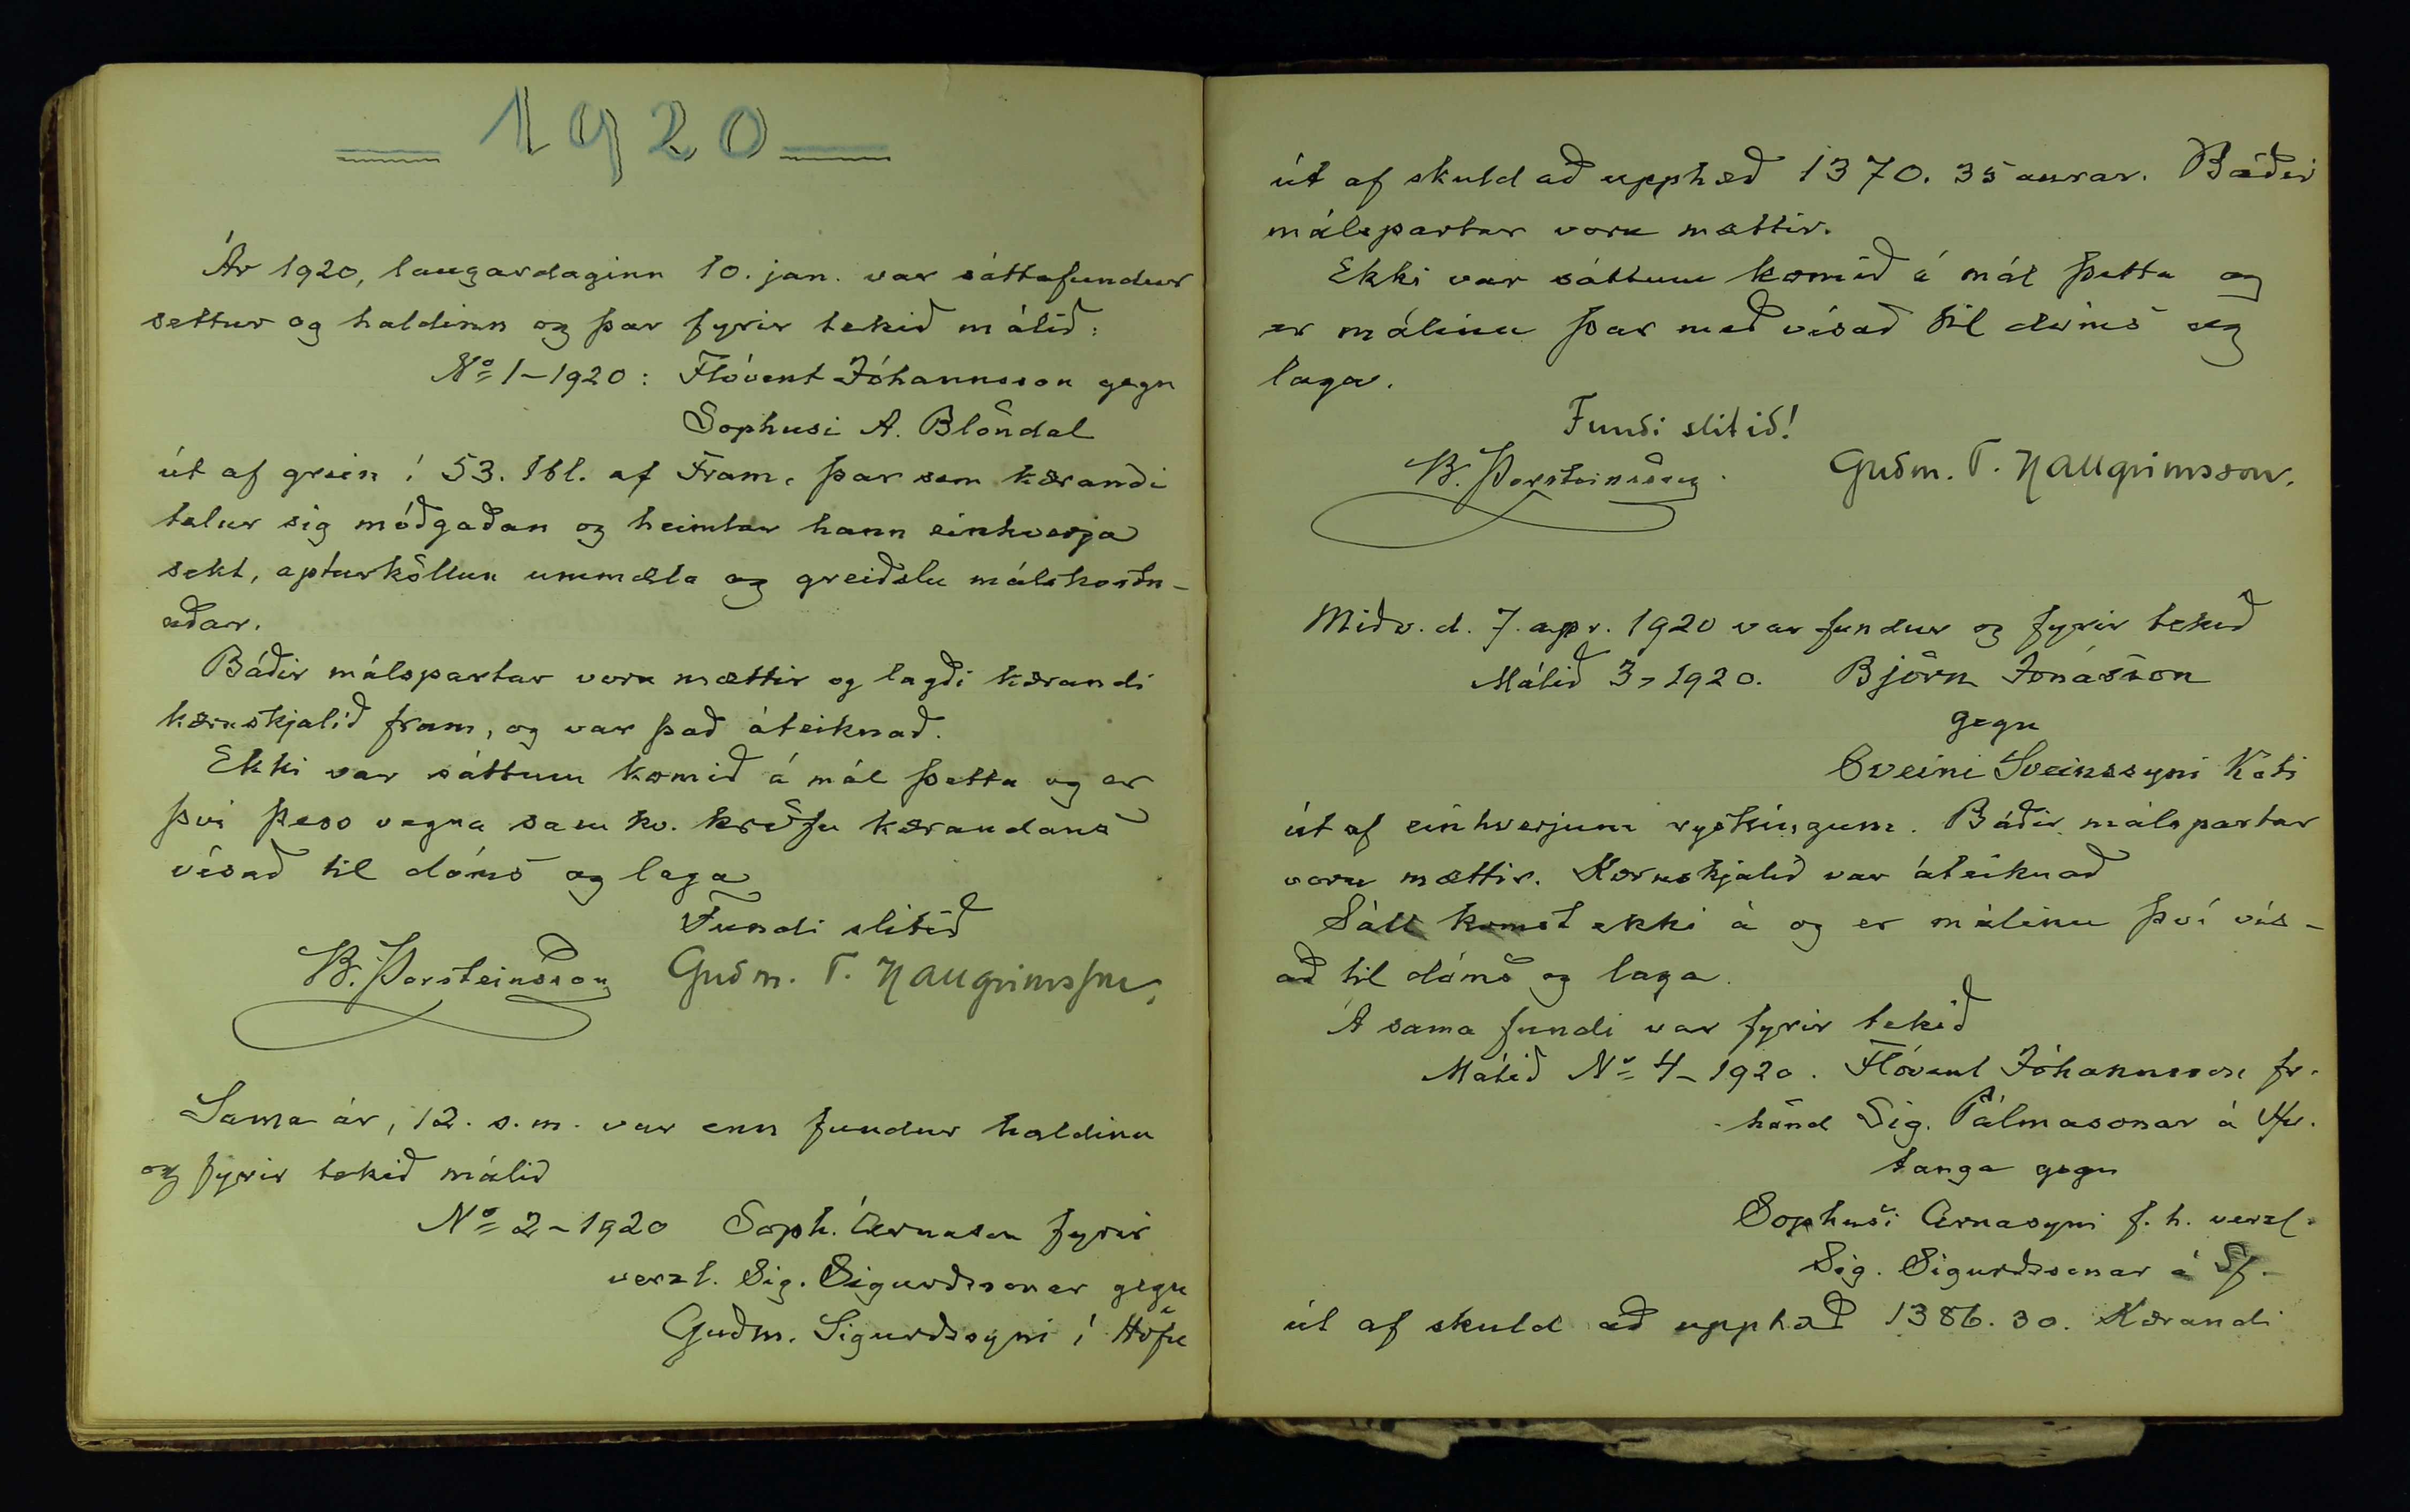 1920
Ár 1920, laugardaginn 10. jan. var sáttafundur
settur og haldinn og þar fyrir tekið málið:
No 1-1920: Flóvent Jóhannsson gegn
Sophusi A. Blöndal
út af grein í 53. tbl. af Fram, þar sem kærandi
telur sig móðgaðan og heimtar hann einhverja
sekt, apturköllun ummæla og greiðslu málskostn-
aðar.
Báðir málspartar voru mættir og lagði kærandi
kæruskjalið fram, og var það áteiknað.
Ekki var sáttum komið á mál þetta og er
því þess vegna samkv. kröfu kærandans
vísað til dóms og laga
Fundi slitið
B. Þorsteinsson Guðm. T. Hallgrimsson.
Sama ár, 12. s.m. var enn fundur haldinn
og fyrir tekið málið
No 2-1920 Soph. Árnason fyrir
verzl. Sig. Sigurðssonar gegn
Guðm. Sigurðssyni í Höfn
út af skuld að upphæð 1370. 35 aurar. Báðir
málspartar voru mættir.
Ekki var sáttum komið á mál þetta og
er málinu þar með vísað til dóms og
laga.
Fundi slitið!
B. Þorsteinsson. Guðm. T. Hallgrimsson.
Miðv.d. 7. apr. 1920 var fundur og fyrir tekið
Málið 3, 1920. Björn Jónasson
gegn
Sveini Sveinssyni
út af einhverjum ryskingum. Báðir málspartar
voru mættir. Kæruskjalið var áteiknað
Sátt komst ekki á og er málinu því vís-
að til dóms og laga.
Á sama fundi var fyrir tekið
Málið No 4-1920. Flóvent Jóhannsson fr.
hönd Sig. Pálmasonar á Hv.
tanga gegn
Sophusi Árnasyni f. h. verzl.
Sig. Sigurðssonar á Sf.
út af skuld að upphæð 1386. 30. Kærandi